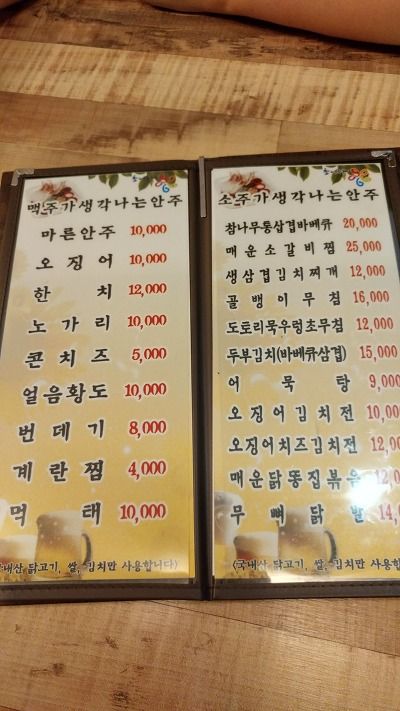 맥주가생각나는안주
마른안주 10,000
오징어 10,000
한치 12,000
노가리 10,000
콘치즈 5,000
얼음황도 10,000
번데기 8,000
계란찜 4,000
먹태 10,000
내산 닭고기, 쌀, 김치만 사용합니다)
소주가생각나는안주
참나무통삼겹바베큐 20,000
매운소갈비찜 25,000
생삼겹김치찌개 12,000
골뱅이무침 16,000
도토리묵우렁초무침 12,000
두부김치(바베큐삼겹) 15,000
어묵탕 9,000
오징어김치전 10,000
오징어치즈김치전 12,000
매운닭똥집볶음 12,0
무뼈닭발 14,0
(국내산 닭고기, 쌀, 김치만 사용합